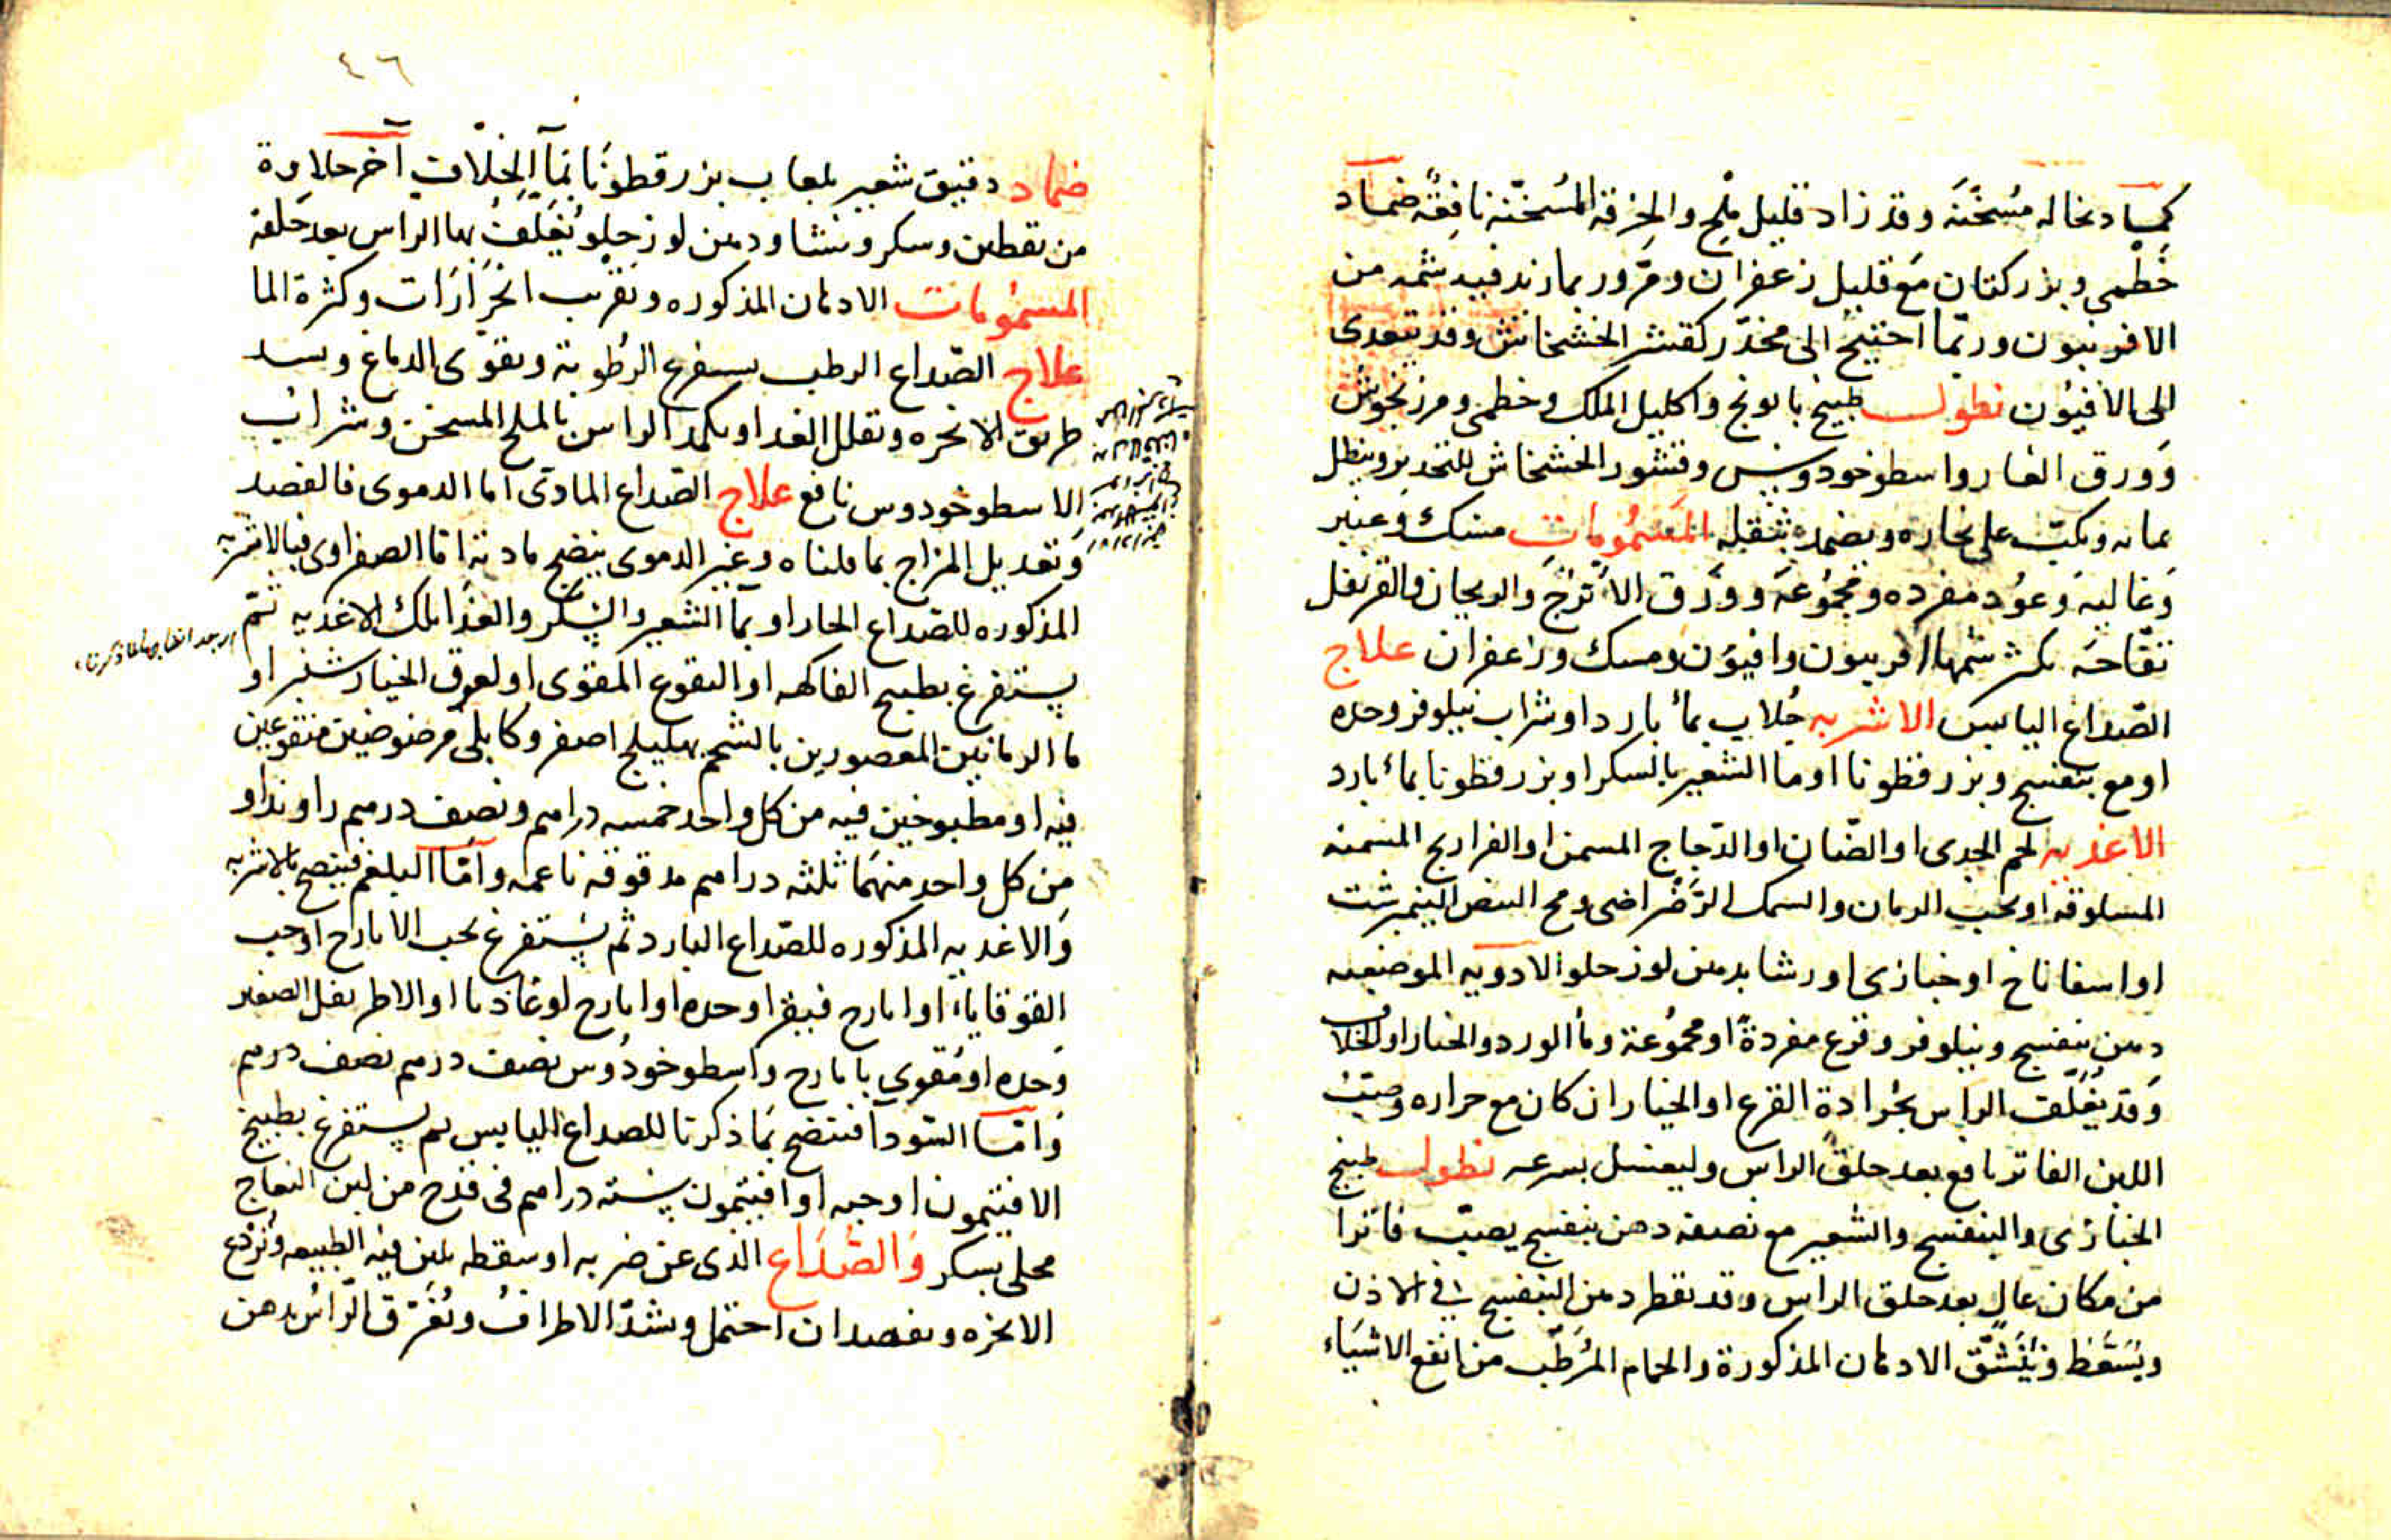 كماد نخاله مُسخّنَة وقد زاد قليل ملح والخرقه المُسَخّنه نافِعَه ضماد
خَطْمي وبزر كتان مَع قليل زعفران ومرّ وربما زيد فيه شمه من
الافربيون وربّما احتيج الى مخدّر كقشر الخشخاش وقد تتعدى
الى الافيُون نطول طبيخ بابونج واكليل الملك وخطمى ومرزنجوش
وَورق الغار واسطوخودوس وقشور الخشخاش للتخدير وينطل
بمائه ويكبّ على بخاره ويضمد بثقله المشمُومات مسك وَعنبر
وَغاليَه وَعوُد مفرده ومجمُوعَة ووَرَق الاُترُجّ والريحان والقرنفل
تفّاحَه يكثر شمها افربيون وافيَون ومسك وزعفران علاج
الصّداع اليابس الاشربه جُلاب بماء بارد او شراب نيلوفر وحده
او مع بنفسج وبزر قطونا او ما الشعير بالسكر او بزر قطونا بماء بارد
الاغذيه لحم الجدى او الضّان او الدّجاج المسمن او الفراريج المسمنه
المسلوقه او بحب الرمان والسمك الرَضراضى ومح البيض النيمبرشت
او اسفاناخ او خبازى او رشتا بدهن لوز حلو الادويه الموضعيه
دهن بنفسج ونيلوفر وقرع مفردةً او مجمُوعة وماء الورد والخيار او الخلاف
وَقد يُغَلّف الراس بجُرادة القرع او الخيار ان كان مع حراره وصبّ
اللبن الفاتر نافع بعد حلق الراس وليغسل بسرعه نطول طبيخ
الخبازى والبنفسج والشعير مع نصفه دهن بنفسج يصبّ فاترا
من مكان عالٍ بعد حلق الراس وقد يقطر دهن البنفسج في الاذن
ويُسَعَّط ويُنَشّق الادهان المذكورة والحمام المُرَطّب من انفع الاشيَاء
٤٦
ضماد دقيق شعير بلعاب بزر قطونَا بمآ الخلاف آخر حلاوة
من يقطين وسكر ونشا ودهن لوز حلو يُغَلّفُ بها الراس بعد حَلقه
المشمُومات الادهان المذكوره وتقريب الخرّارَات وكثرة الما
علاج الصّداع الرطب يستفرغ الرُطوبة ويقوّى الدماغ ويسد
طريق الابخره ويقلل الغدا ويكمد الراس بالملح المسخن وشراب
الاسطوخودوس نافع علاج الصّداع المادّى اما الدموى فالفصد
وَتعديل المزاج بما قلناه وغير الدموى ينضج مادته اما الصفراوى فبالاشربه
المذكوره للصّداع الحار او بمآ الشعير والسّكر والغذا بتلك الاغذيه ثمّ
يستفرغ بطبيخ الفاكهه او النقوع المقوى او لعوق الخيار شنبر او
ما الرمانين المعصورين بالشحم بهليلج اصفر وكابلى مرضوضين منقوعين
فيه او مطبوخين فيه من كل واحد خمسه دراهم ونصف درهم راوند او
من كل واحد منهمَا ثلثه دراهم مدقوقه ناعمه وَامّا البلغم فينضج بالاشربه
وَالاغديه المذكوره للصّداع البارد ثم يَستفرغ بحب الايارج او حب
القوقايا او ايارج فيقرا وحده او ايارج لوغاذيا او الاطريفل الصغير
وَحده او مُقوي بايارج واسطوخودُوس نصف درهم نصف درهم
وَامّا السّودآ فتنضج بمَا ذكرنا للصداع اليابس ثم يستفرغ بطبيخ
الافتيمون او حبه او افيتمون ستّه دراهم فى قدح من لبن النعاج
محلى بسكر وَالصُّدَاع الذى عن ضربه او سقطه يلين فيه الطبيعه وتُردَع
الابخره ويفصد ان احتمل ويشدّ الاطرافُ وتُغَرّق الرّاسُ بدهن